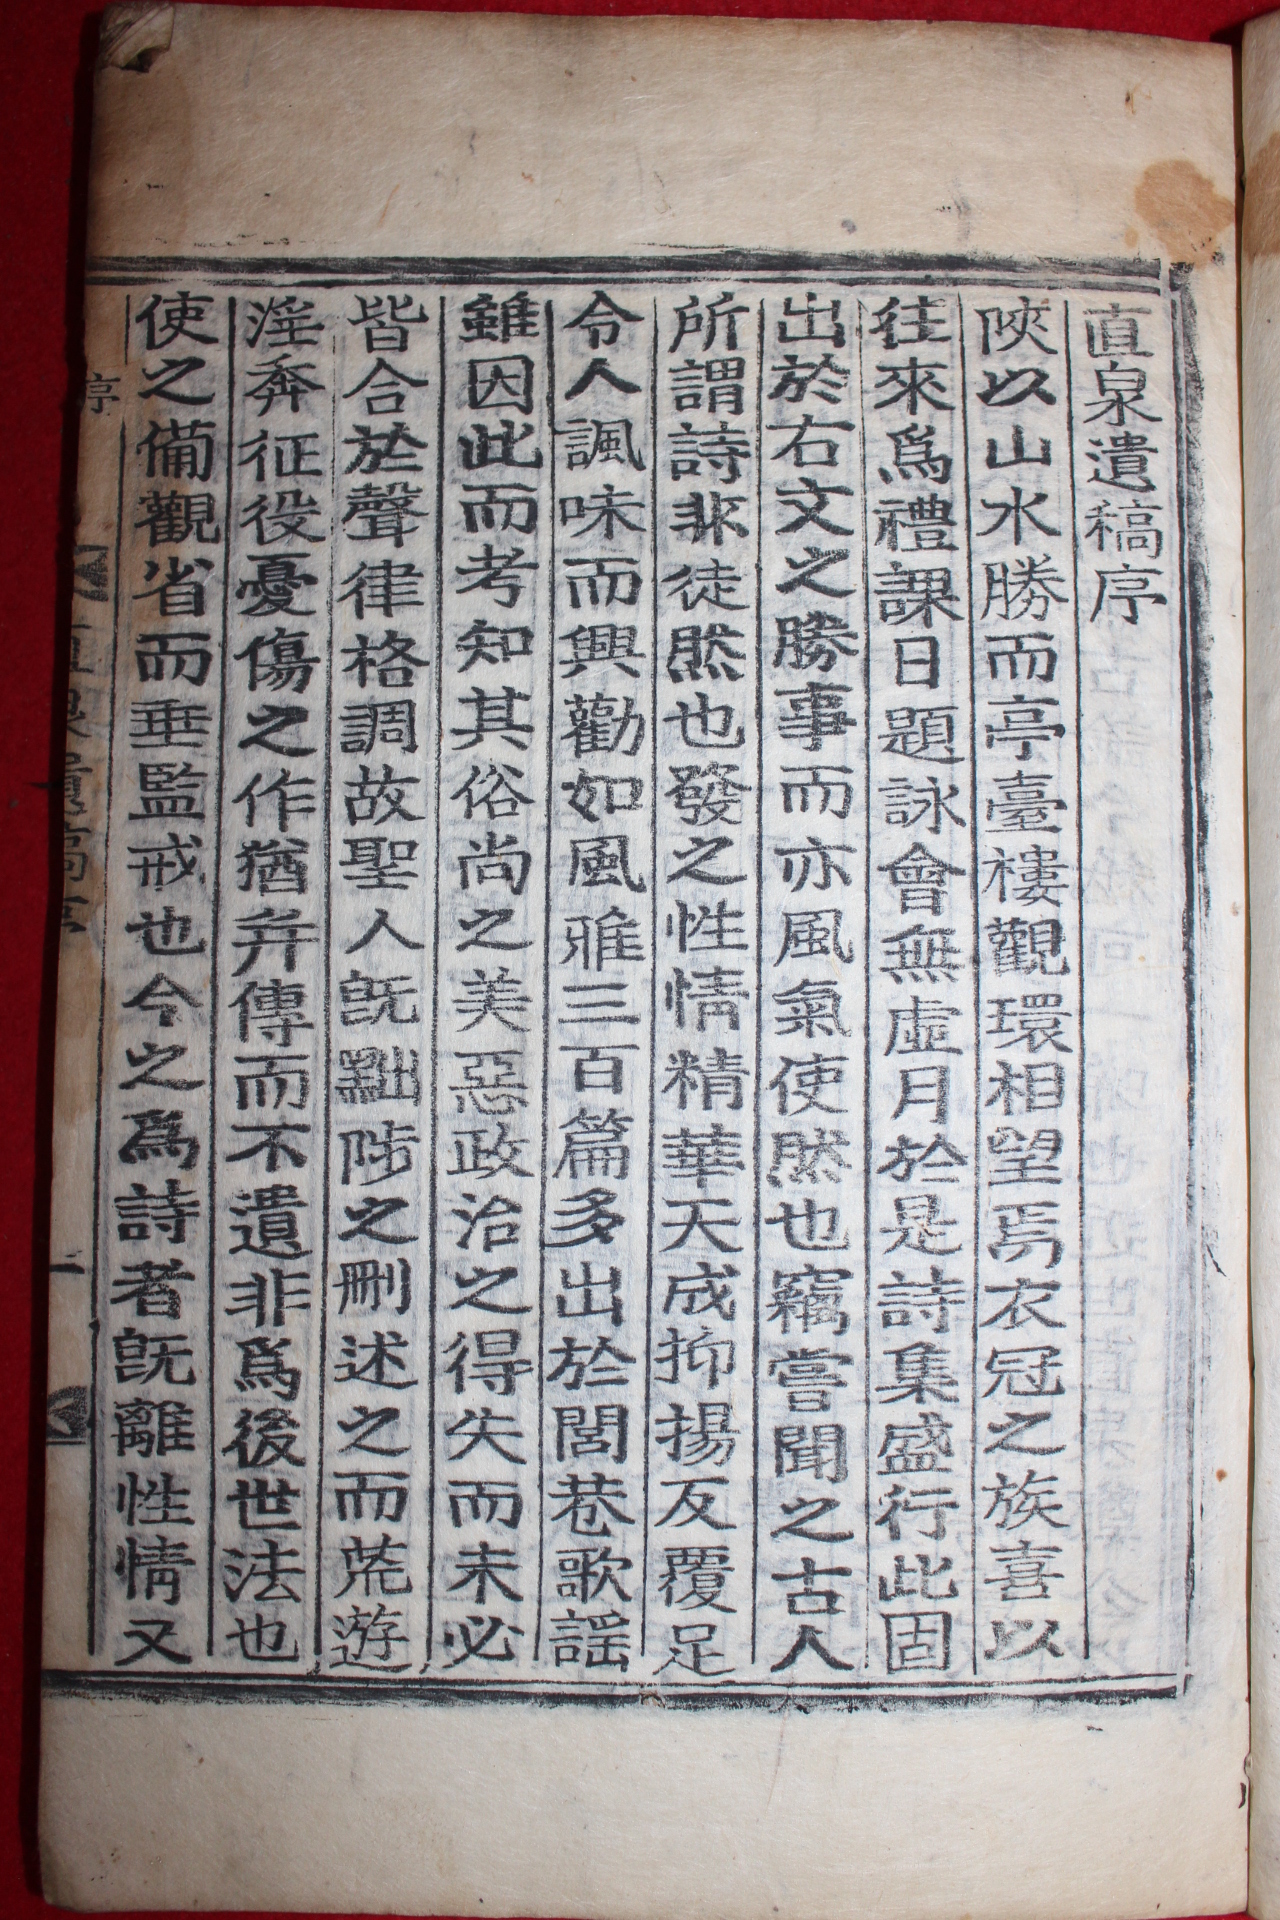 直泉遺稿序
陜以山水勝而亭臺樓觀環相望焉衣冠之族喜以
往來爲禮課日題詠會無虛月於是詩集盛行此固
出於右文之勝事而亦風氣使然也竊嘗聞之古人
所謂詩非徒然也發之性情精華天成抑揚反覆足
令人諷味而興勸如風雅三百篇多出於閭巷歌謠
雖因此而考知其俗尚之美惡政治之得失而未必
皆合於聲律格調故聖人旣黜陟之刪述之而荒遊
淫奔征役憂傷之作猶幷傳而不遺非爲後世法也
使之備觀省而垂監戒也今之爲詩者旣離性情又
序
直泉遺稿序
一